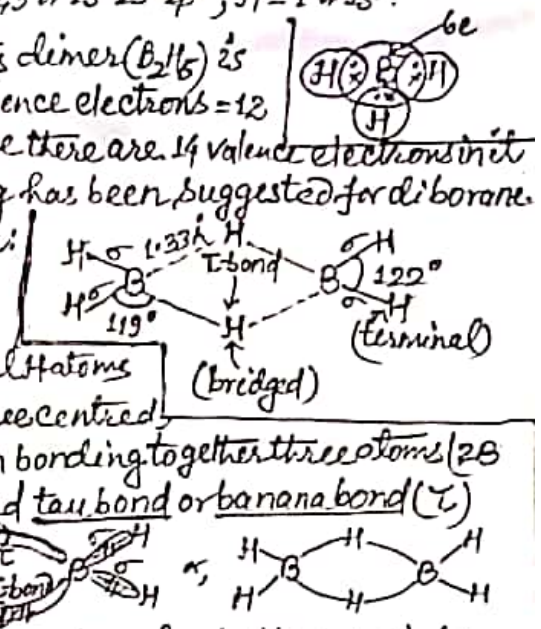 6e
dimer (B2H5) is
H B H
ence electrons = 12
H
e there are 14 valence electrons in it
g has been suggested for diborane.
H σ 1.33Å H σ H
τ-bond
B B 122°
H σ σ H
119° H (terminal)
(bridged)
l H atoms
ee centred,
n bonding together three atoms (2B
d tau bond or banana bond (τ)
τ σ H H H H
τ-bond B σ or, B B
H H H H